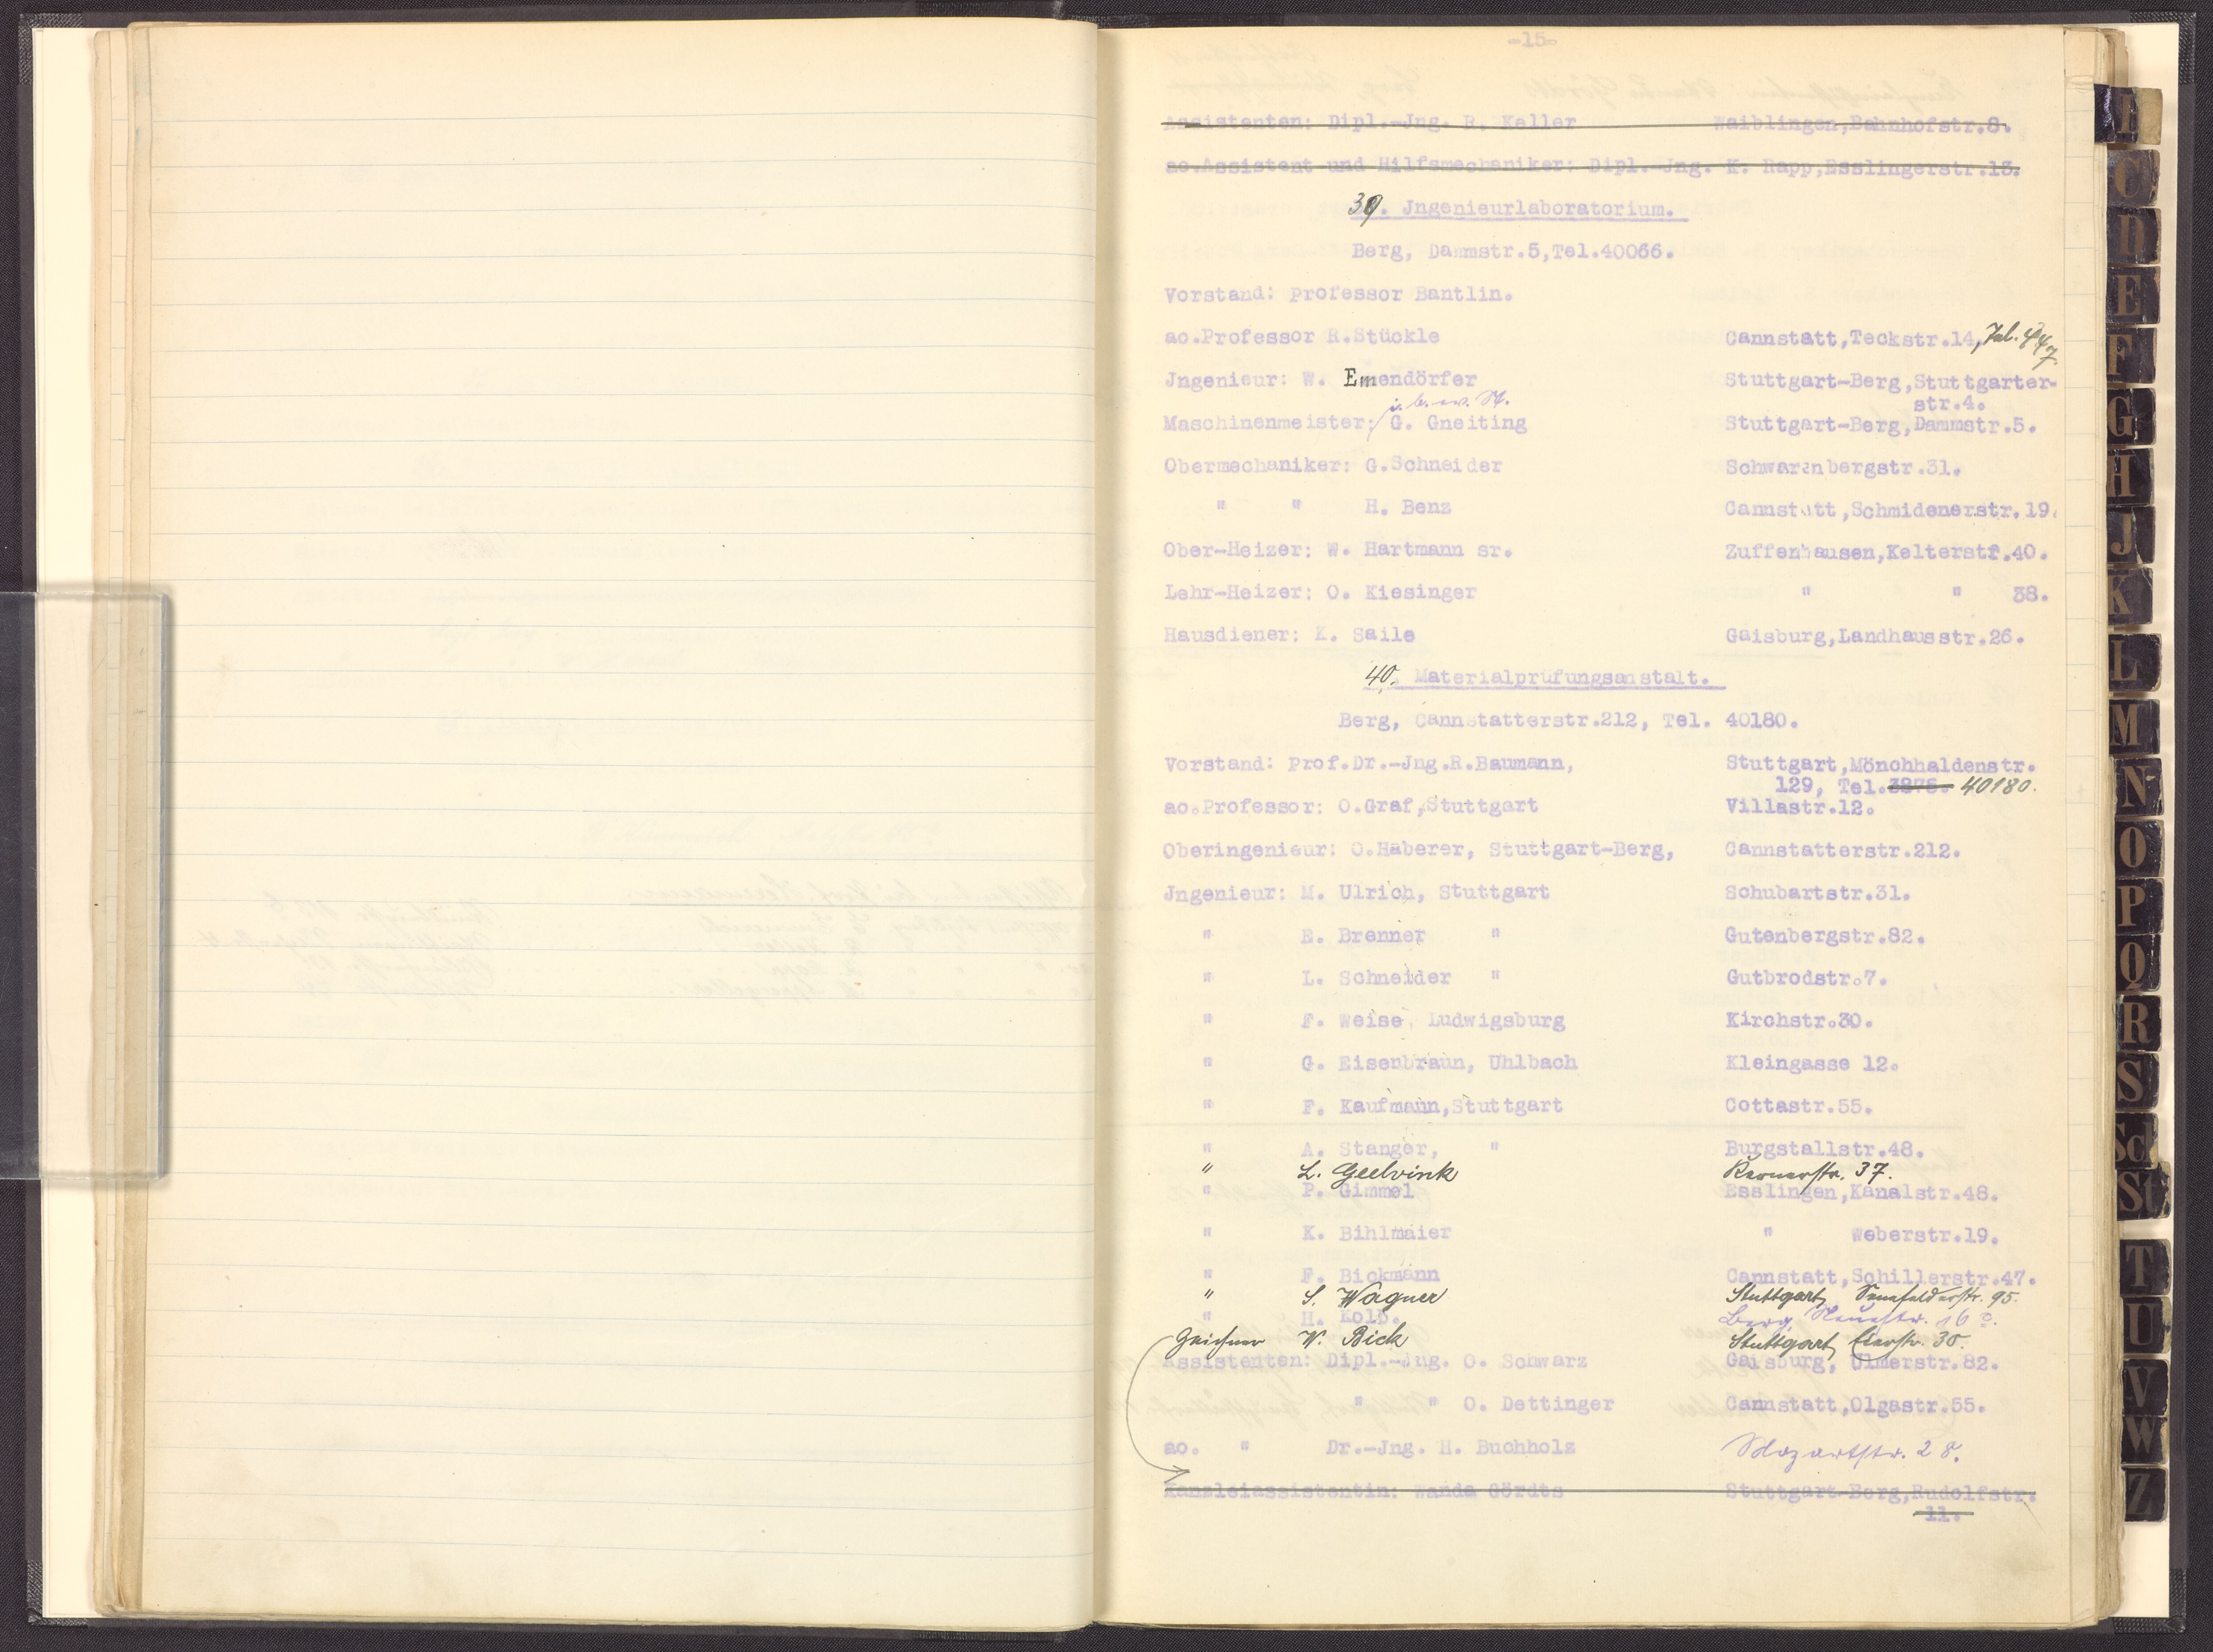 -15-
Assistenten: Dipl.-Jng. R. Keller Waiblingen,Bahnhofstr.8.
ao.Assistent und Hilfsmechaniker: Dipl.-Jng. K. Rapp,Esslingerstr.13.
39. Jngenieurlaboratorium.
Berg, Dammstr.5,Tel.40066.
Vorstand: Professor Bantlin.
ao.Professor R.Stückle Cannstatt,Teckstr.14, Tel. 447.
Jngenieur: W. Emendörfer Stuttgart-Berg,Stuttgarter-
str.4.
Maschinenmeister: G. Gneiting Stuttgart-Berg,Dammstr.5.
Obermechaniker: G.Schneider Schwarenbergstr.31.
" " H. Benz Cannstatt,Schmidenerstr.19.
Ober-Heizer: W. Hartmann sr. Zuffenhausen,Kelterstr.40.
Lehr-Heizer: O. Kiesinger " " 38.
Hausdiener: K. Saile Gaisburg,Landhausstr.26.
40. Materialprüfungsanstalt.
Berg, Cannstatterstr.212, Tel. 40180.
Vorstand: Prof.Dr.-Jng.R.Baumann, Stuttgart,Mönchhaldenstr.
129, Tel. 40180.
ao.Professor: O.Graf,Stuttgart Villastr.12.
Oberingenieur: O.Haberer, Stuttgart-Berg, Cannstatterstr.212.
Jngenieur: M. Ulrich, Stuttgart Schubartstr.31.
" E. Brenner " Gutenbergstr.82.
" L. Schneider " Gutbrodstr.7.
" F. Weise, Ludwigsburg Kirchstr.30.
" G. Eisenbraun, Uhlbach Kleingasse 12.
" F. Kaufmann,Stuttgart Cottastr.55.
" A. Stanger, " Burgstallstr.48.
" L. Geelvink Kernerstr. 37.
" P. Gimmel Esslingen,Kanalstr.48.
" K. Bihlmaier " Weberstr.19.
" F. Bickmann Cannstatt,Schillerstr.47.
" S. Wagner Stuttgart, Senefelderstr. 95.
" H. Kolb. Berg, Neuestr. 16
Zeichner W. Bick Stuttgart,
Assistenten: Dipl.-Jng. O. Schwarz Gaisburg, Ulmerstr.82.
" " O. Dettinger Cannstatt,Olgastr.55.
ao. " Dr.-Jng. H. Buchholz Mozartstr. 28.
Kanzleiassistentin: Wanda Gördts Stuttgart-Berg,Rudolfstr.
11.
I
C
D
E
F
G
H
J
K
L
M
N
O
P
Q
R
S
Sch
St
T
U
V
W
Z